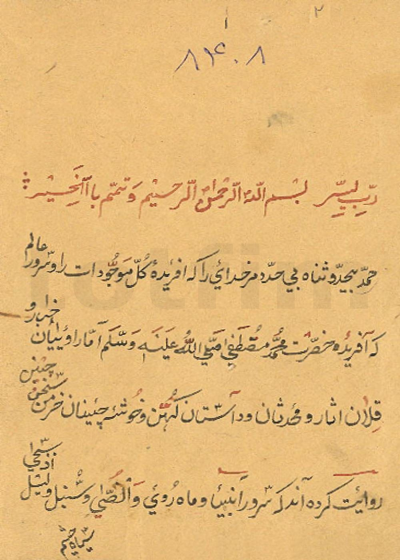 ۲
۸۱۴۰۸
ربّ یسّر بسم اللّه الرّحمن الرّحیم وتمّم باالخیر
حمد بیحد و ثناه بی حدد مر خدای را که افریدهٔ کلّ موجودات را و سرور عالم
که آفریده حضرت محمّد مصطفی صلی اللّه علیه وسلّم امّا راویان اخبار و
قلان اثار و محدثان و داستان کهن و خوشه چینان خرمن سخن چنین
روایت کرده آند که سرور انبیآ و ماه روی والضّحی وسنبل واللیل اذ سجی
سیاه چشم